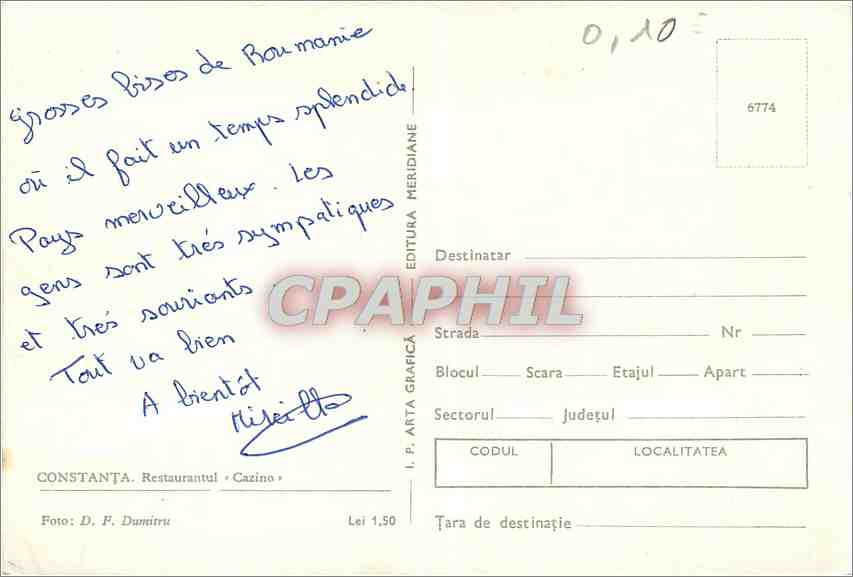 0,10
grosses bises de Roumanie
où il fait un temps splendide.
Pays merveilleux. Les
gens sont trés sympatiques
et trés souriants.
Tout va bien
A bientôt
Mireille
CONSTANȚA. Restaurantul «Cazino»
Foto: D. F. Dumitru Lei 1,50
I. P. ARTA GRAFICĂ EDITURA MERIDIANE
CPAPHIL
6774
Destinatar
Strada Nr
Blocul Scara Etajul Apart
Sectorul Județul
CODUL LOCALITATEA
Țara de destinație